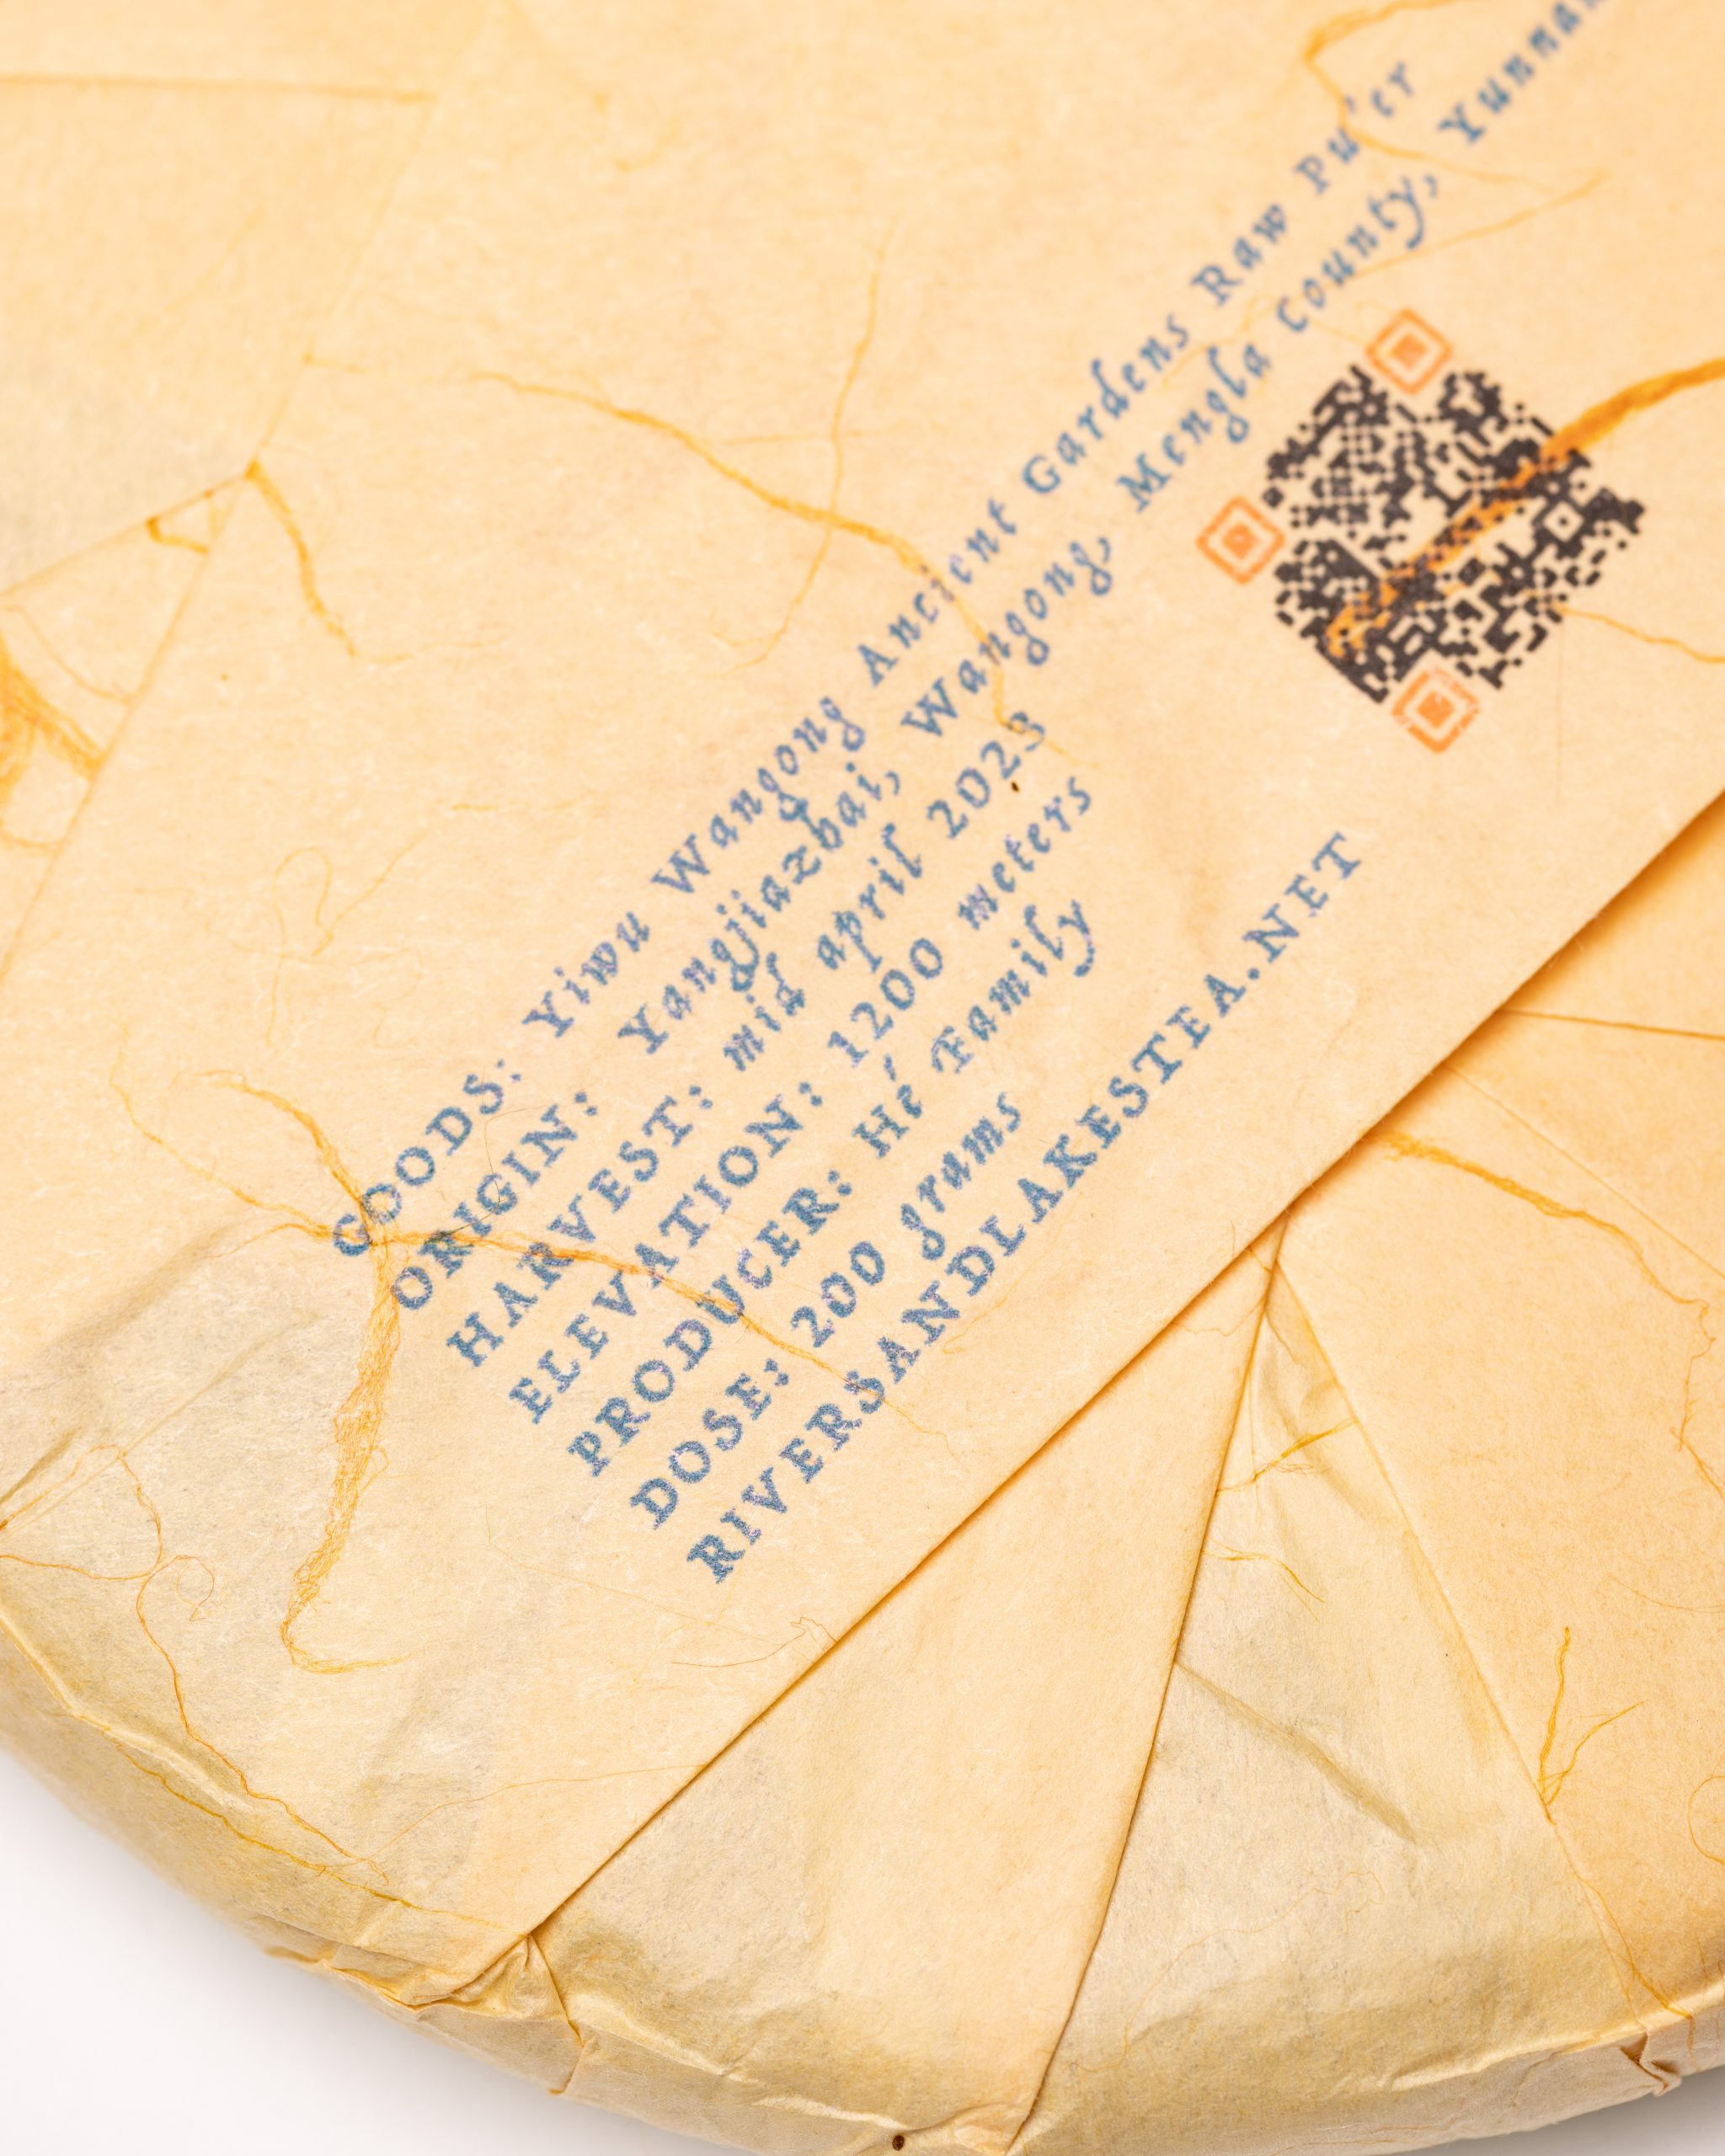 GOODS: Yiwu Wangong Ancient Gardens Raw Pu'er
ORIGIN: Yangjiazhai, Wangong, Mengla county, Yunnan
HARVEST: mid april 2023
ELEVATION: 1200 meters
PRODUCER: Hé Family
DOSE: 200 grams
RIVERSANDLAKESTEA.NET